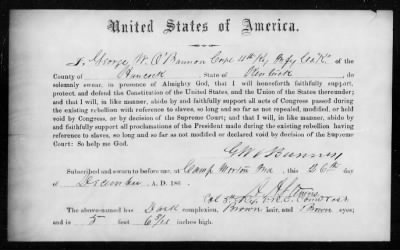 United States of America.
I, George W. O'Bannon Corp 4th Ky Infy Co K of the
County of Hancock, State of Kentucky, do
solemnly swear, in presence of Almighty God, that I will henceforth faithfully support,
protect, and defend the Constitution of the United States, and the Union of the States thereunder;
and that I will, in like manner, abide by and faithfully support all acts of Congress passed during
the existing rebellion with reference to slaves, so long and so far as not repealed, modified, or held
void by Congress, or by decision of the Supreme Court; and that I will, in like manner, abide by
and faithfully support all proclamations of the President made during the existing rebellion having
reference to slaves, so long and so far as not modified or declared void by decision of the Supreme
Court: So help me God.
Subscribed and sworn to before me, at Camp Morton Ind, this 26th
day of December A.D. 186
Col 5th Reg V.R.C.
The above-named has Dark complexion, Brown hair, and Brown eyes;
and is 5 feet inches high.